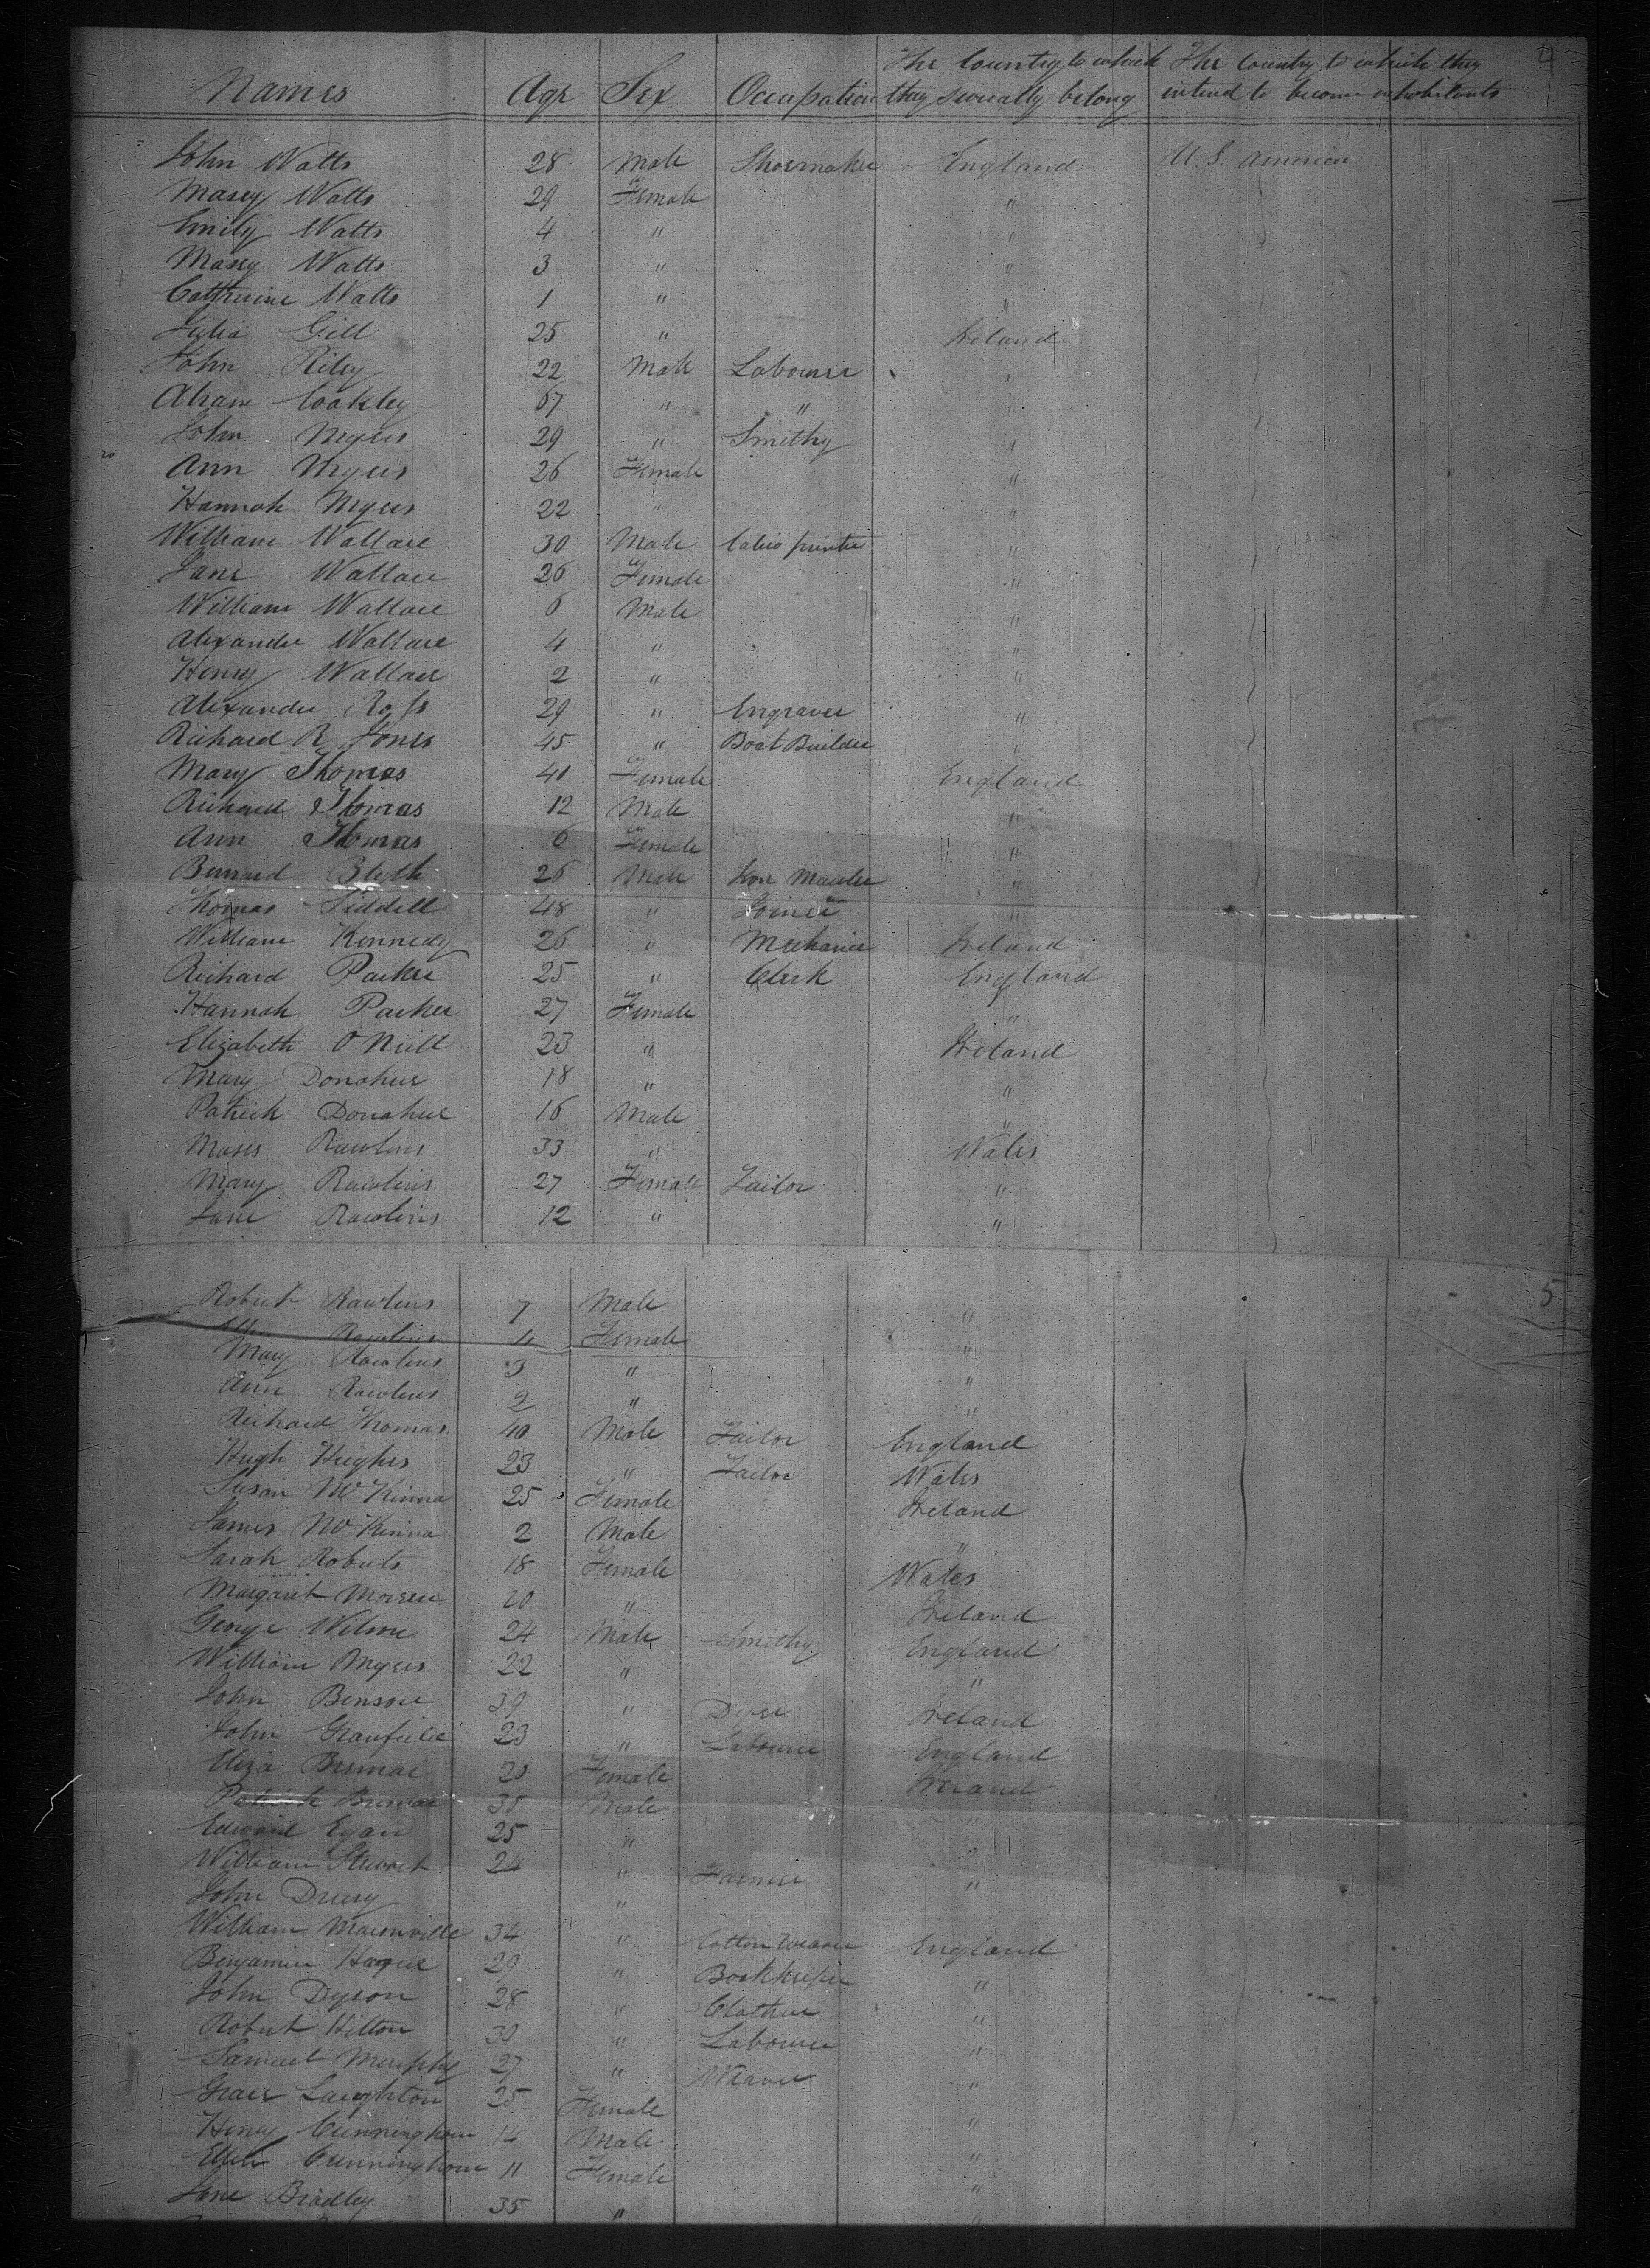 4
Names Age Sex Occupation The Country to which they severally belong The Country to which they intend to become inhabitants
John Watts 28 Male Shoemaker England U.S. America
Marey Watts 29 Female "
Emily Watts 4 " "
Marey Watts 3 " "
Catherine Watts 1 " "
Julia Gill 25 " Ireland
John Riley 22 Male Labourer "
Abram Coakley 67 " " "
John Myers 29 " Smithy "
Ann Myers 26 Female "
Hannah Myers 22 " "
William Wallace 30 Male Calico printer "
Jane Wallace 26 Female "
William Wallace 6 Male "
Alexander Wallace 4 " "
Henry Wallace 2 " "
Alexander Ross 29 " Engraver "
Richard R Jones 45 " Boat Builder "
Mary Thomas 40 Female England
Richard Thomas 12 Male "
Ann Thomas 6 Female "
Bernard Blyth 26 Male Iron "
Thomas Siddell 48 " Joiner "
William Kennedy 26 " Mechanic Ireland
Richard Parker 25 " Clerk England
Hannah Parker 27 Female "
Elizabeth O Neill 23 " Ireland
Mary Donahue 18 " "
Patrick Donahue 16 Male "
Moses Rawlins 33 " Wales
Mary Rawlins 27 Female Tailor "
Jane Rawlins 12 " "
5
Robert Rawlins 7 Male "
Rawlins 4 Female "
Mary Rawlins 3 " "
Ann Rawlins 2 " "
Richard Thomas 40 Male Tailor England
Hugh Hughes 23 " Tailor Wales
Susan McKinna 25 Female Ireland
James McKinna 2 Male "
Sarah Roberts 18 Female Wales
Margaret 20 " Ireland
George Wilson 24 Male Smithy England
William Myers 22 " "
John Benson 39 " Dyer Ireland
John Granfield 23 " Labourer England
Eliza 20 Female Ireland
Patrick Male "
Edward Egan 25 " "
William Stewart 24 " Farmer "
John Drury "
William 34 " Cotton Weaver England
Benjamin Hague 29 " Bookkeeper "
John Dyson 28 " Clothier "
Robert Hilton 30 " Labourer "
Samuel Murphy 27 " Weaver "
Grace Laughton 25 Female "
Henry Cunningham 14 Male "
Ellen Cunningham 11 Female "
Jane Bradley 35 " "